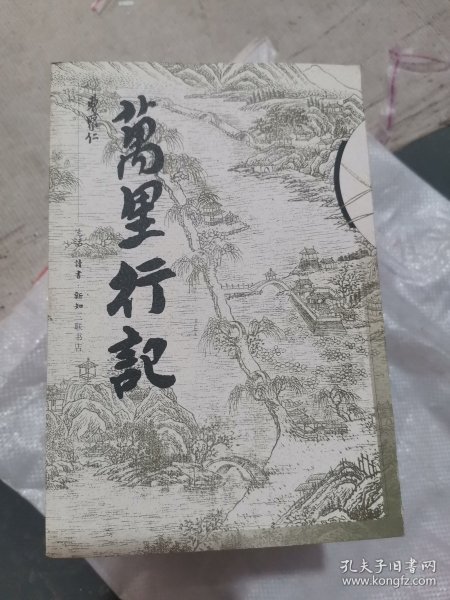 萬里行記
曹聚仁
生活 讀書 新知 三联书店
孔夫子旧书网
www.kongfz.com